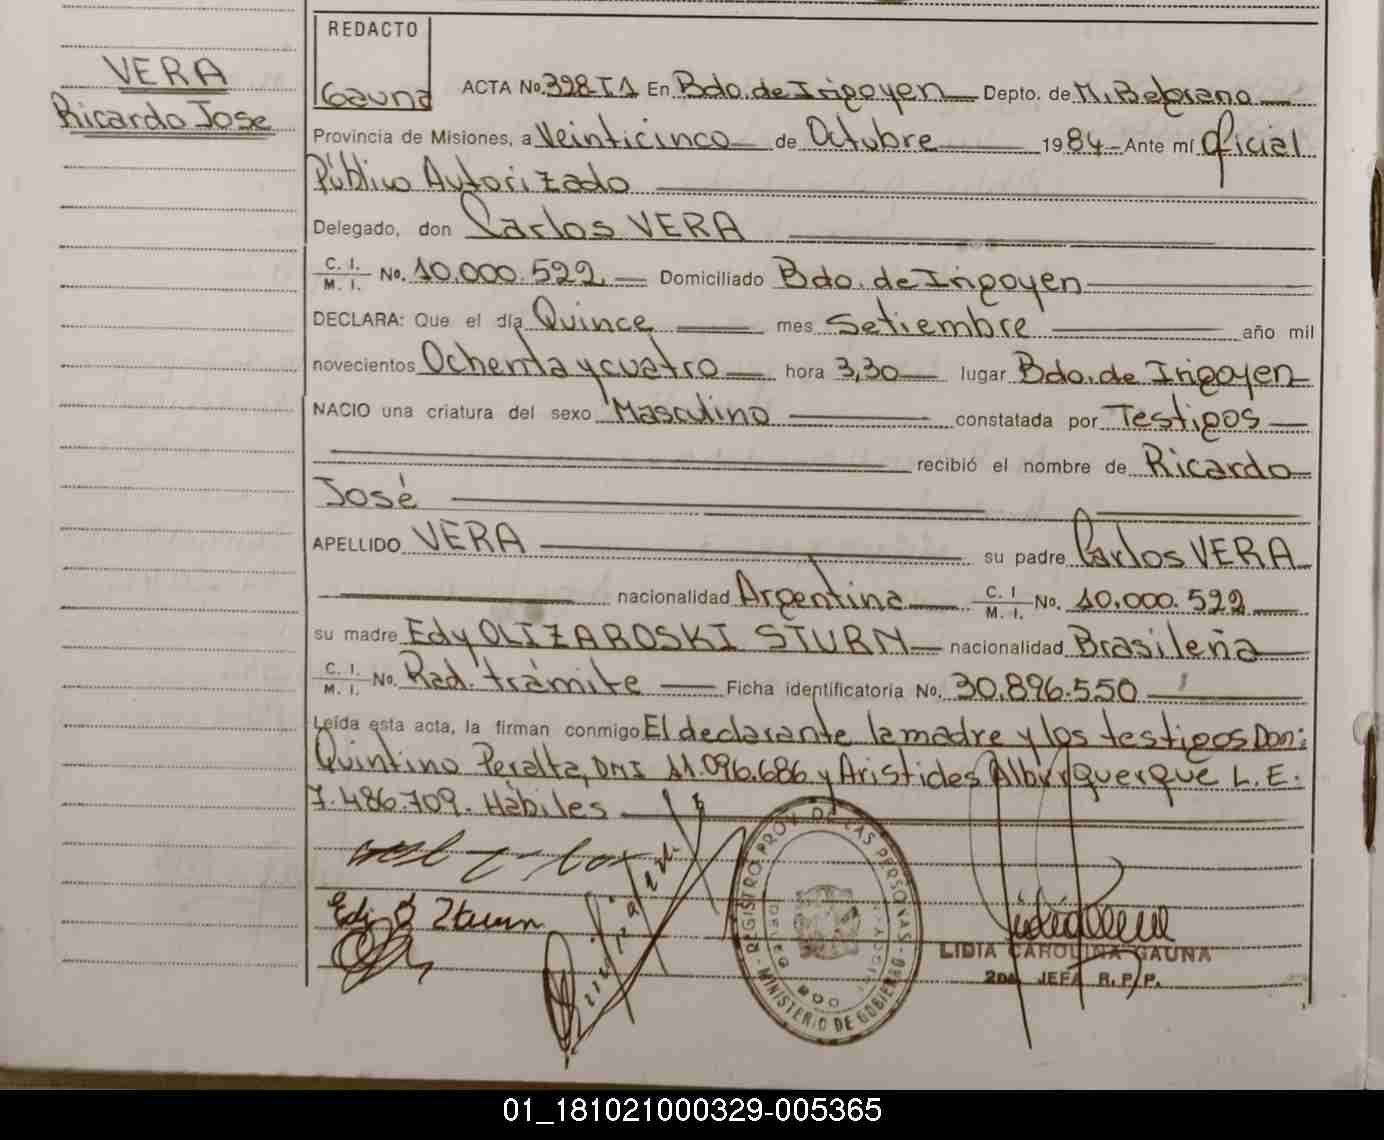 VERA
Ricardo Jose
REDACTO
Gauna
ACTA No. 398-T1 En Bdo. de Irigoyen Depto. de M. Belgrano
Provincia de Misiones, a Veinticinco de Octubre 1984 - Ante mí Oficial
Público Autorizado
Delegado, don Carlos VERA
C. I.
M. I. No. 10.000.522 Domiciliado Bdo. de Irigoyen
DECLARA: Que el día Quince mes Setiembre año mil
novecientos Ochenta y cuatro hora 3,30 lugar Bdo. de Irigoyen
NACIO una criatura del sexo Masculino constatada por Testigos
recibió el nombre de Ricardo
José
APELLIDO VERA su padre Carlos VERA
nacionalidad Argentina C. I
M. I. No. 10.000.522
su madre Edy OLIZAROSKI STURN nacionalidad Brasileña
C. I.
M. I. No. Rad. trámite Ficha identificatoria No. 30.896.550
Leída esta acta, la firman conmigo El declarante la madre y los testigos Don:
Quintino Peralta, DNI 11.096.686 y Aristides Alburquerque L. E.
7.486.709. Hábiles
Edy O Zturn
REGISTRO PROV. DE LAS PERSONAS - MINISTERIO DE GOBIERNO -
LIDIA CAROLINA GAUNA
2DA. JEFA R. P. P.
01_181021000329-005365